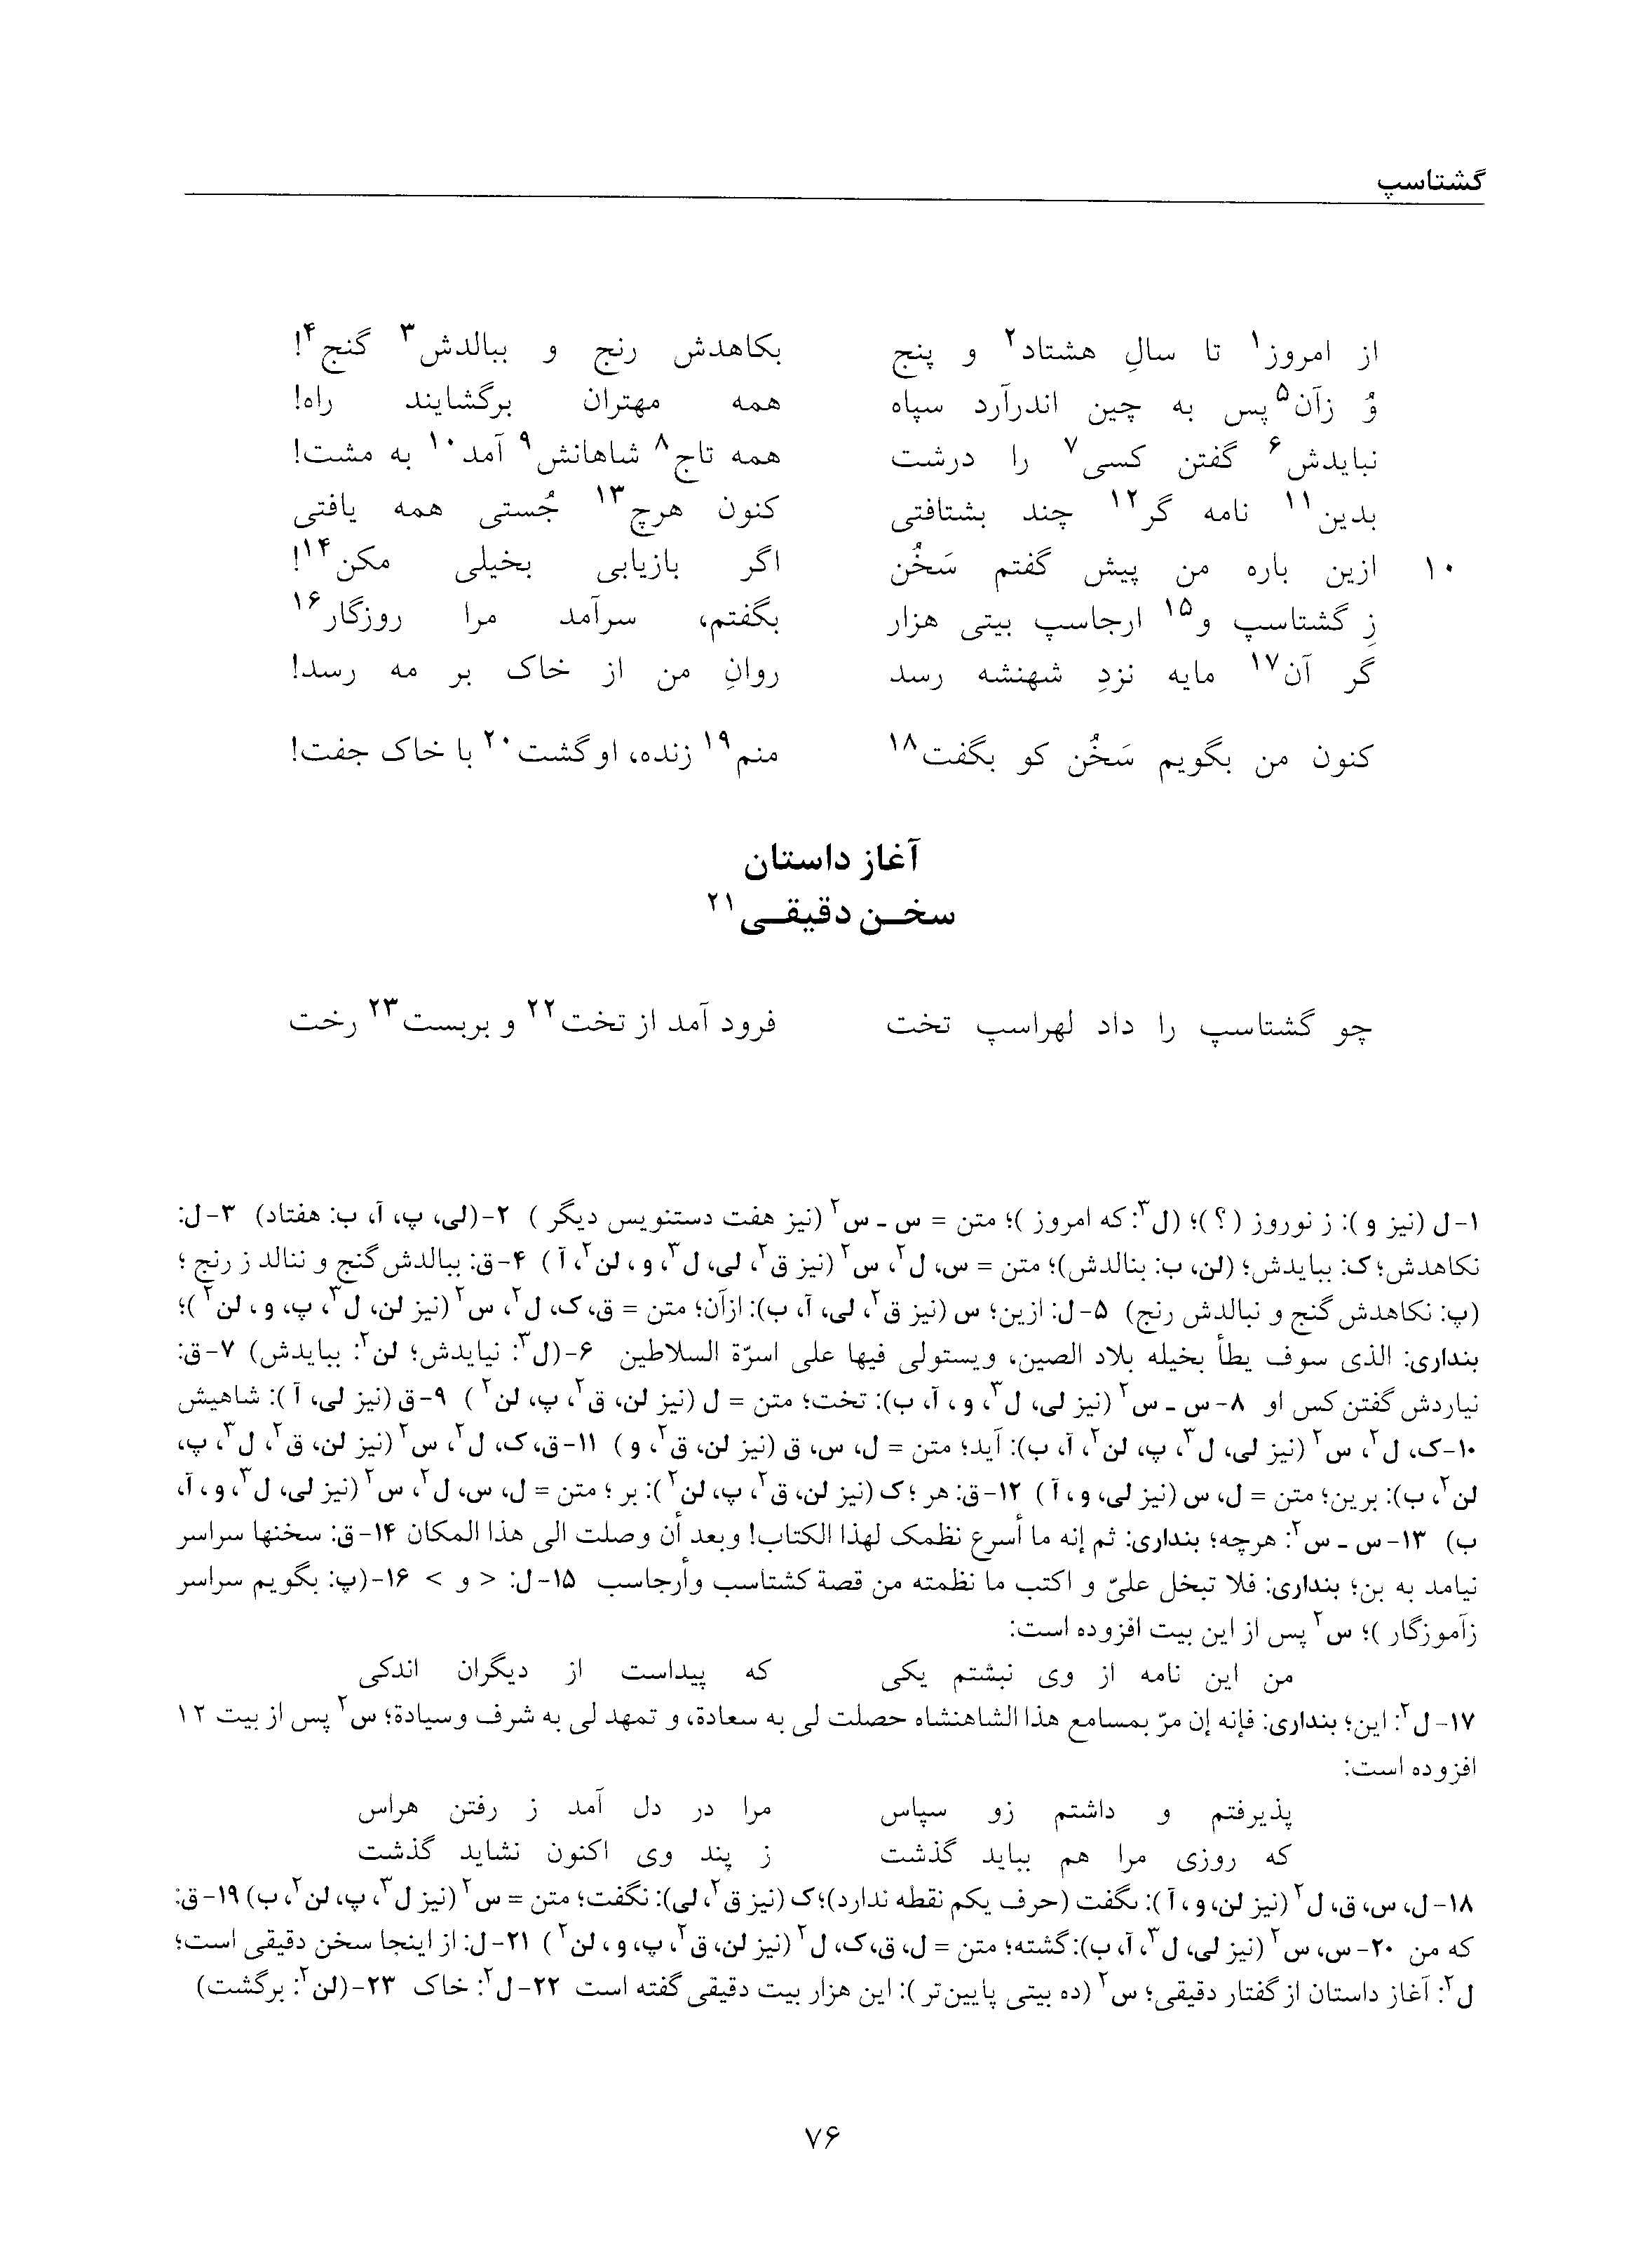 گشتاسپ
از امروز۱ تا سالِ هشتاد۲ و پنج    بکاهدش رنج و ببالدش۳ گنج۴!
وُ زآن۵ پس به چین اندرآرد سپاه    همه مهتران برگشایند راه!
نبایدش۶ گفتن کسی۷ را درشت    همه تاج۸ شاهانش۹ آمد۱۰ به مشت!
بدین۱۱ نامه گر۱۲ چند بشتافتی    کنون هرچ۱۳ جُستی همه یافتی
۱۰ ازین باره من پیش گفتم سَخُن    اگر بازیابی بخیلی مکن۱۴!
زِ گشتاسپ و۱۵ ارجاسپ بیتی هزار    بگفتم، سرآمد مرا روزگار۱۶
گر آن۱۷ مایه نزدِ شهنشه رسد    روانِ من از خاک بر مه رسد!
کنون من بگویم سَخُن کو بگفت۱۸    منم۱۹ زنده، او گشت۲۰ با خاک جفت!
آغاز داستان
سخـن دقیقـی۲۱
چو گشتاسپ را داد لهراسپ تخت    فرود آمد از تخت۲۲ و بربست۲۳ رخت
۱-ل (نیز و): ز نوروز (؟)؛ (ل۳: که امروز)؛ متن = س ـ س۲ (نیز هفت دستنویس دیگر) ۲-(لی، پ، آ، ب: هفتاد) ۳-ل:
نکاهدش؛ ک: ببایدش؛ (لن، ب: بنالدش)؛ متن = س، ل۲، س۲ (نیز ق۲، لی، ل۳، و، لن۲، آ) ۴-ق: ببالدش گنج و ننالد ز رنج؛
(پ: نکاهدش گنج و نبالدش رنج) ۵-ل: ازین؛ س (نیز ق۲، لی، آ، ب): ازآن؛ متن = ق، ک، ل۲، س۲ (نیز لن، ل۳، پ، و، لن۲)؛
بنداری: الذی سوف یطأ بخیله بلاد الصین، ویستولی فیها علی اسرّة السلاطین ۶-(ل۳: نیایدش؛ لن۲: ببایدش) ۷-ق:
نیاردش گفتن کس او ۸-س ـ س۲ (نیز لی، ل۳، و، آ، ب): تخت؛ متن = ل (نیز لن، ق۲، پ، لن۲) ۹-ق (نیز لی، آ): شاهیش
۱۰-ک، ل۲، س۲ (نیز لی، ل۳، پ، لن۲، آ، ب): آید؛ متن = ل، س، ق (نیز لن، ق۲، و) ۱۱-ق، ک، ل۲، س۲ (نیز لن، ق۲، ل۳، پ،
لن۲، ب): برین؛ متن = ل، س (نیز لی، و، آ) ۱۲-ق: هر؛ ک (نیز لن، ق۲، پ، لن۲): بر؛ متن = ل، س، ل۲، س۲ (نیز لی، ل۳، و، آ،
ب) ۱۳-س ـ س۲: هرچه؛ بنداری: ثم إنه ما أسرع نظمک لهذا الکتاب! وبعد أن وصلت الی هذا المکان ۱۴-ق: سخنها سراسر
نیامد به بن؛ بنداری: فلا تبخل علیّ و اکتب ما نظمته من قصة کشتاسب وأرجاسب ۱۵-ل: < و > ۱۶-(پ: بگویم سراسر
زآموزگار)؛ س۲ پس از این بیت افزوده است:
من این نامه از وی نبشتم یکی    که پیداست از دیگران اندکی
۱۷-ل۲: این؛ بنداری: فإنه إن مرّ بمسامع هذا الشاهنشاه حصلت لی به سعادة، و تمهد لی به شرف وسیادة؛ س۲ پس از بیت ۱۲
افزوده است:
پذیرفتم و داشتم زو سپاس    مرا در دل آمد ز رفتن هراس
که روزی مرا هم بباید گذشت    ز پند وی اکنون نشاید گذشت
۱۸-ل، س، ق، ل۲ (نیز لن، و، آ): ٮگفت (حرف یکم نقطه ندارد)؛ ک (نیز ق۲، لی): نگفت؛ متن = س۲ (نیز ل۳، پ، لن۲، ب) ۱۹-ق:
که من ۲۰-س، س۲ (نیز لی، ل۳، آ، ب): گشته؛ متن = ل، ق، ک، ل۲ (نیز لن، ق۲، پ، و، لن۲) ۲۱-ل: از اینجا سخن دقیقی است؛
ل۲: آغاز داستان از گفتار دقیقی؛ س۲ (ده بیتی پایین‌تر): این هزار بیت دقیقی گفته است ۲۲-ل۲: خاک ۲۳-(لن۲: برگشت)
۷۶